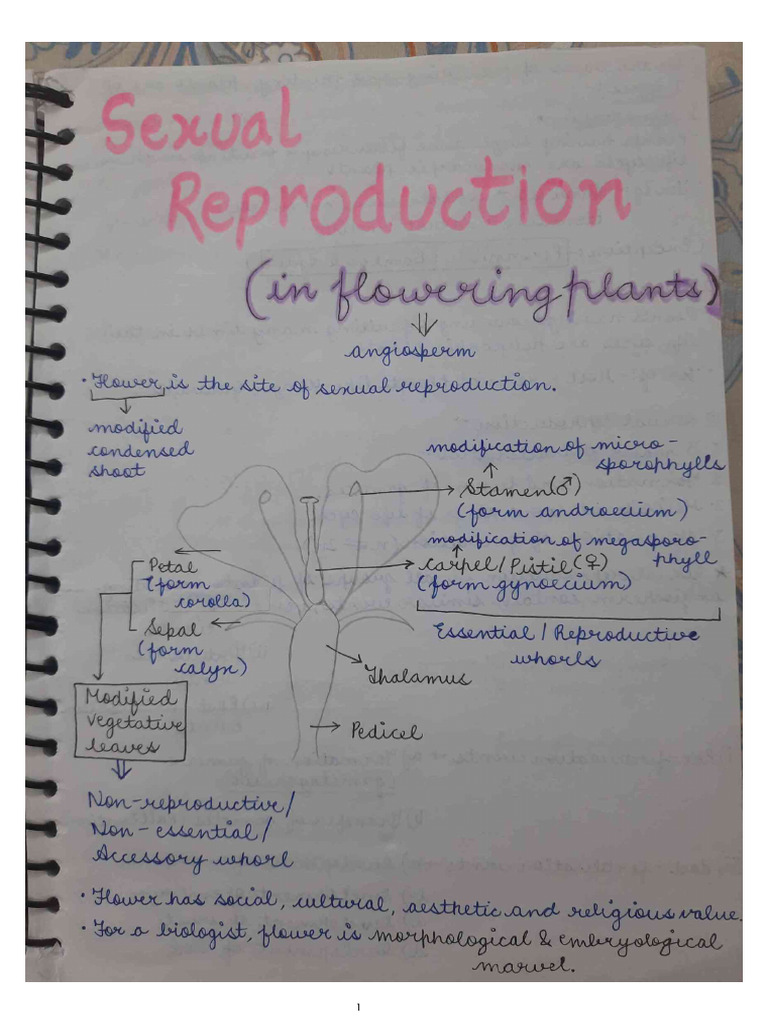 Sexual
Reproduction
(in flowering plants)
⇓
angiosperm
• Flower is the site of sexual reproduction.
↓
modified
condensed
shoot
modification of micro-
sporophylls
↑
Stamen(♂)
(form androecium)
modification of megasporo-
phyll
↑
Carpel/Pistil(♀)
(form gynoecium)
Essential/Reproductive
whorls
Petal
(form
corolla)
Sepal
(form
calyx)
Thalamus
Pedicel
Modified
vegetative
leaves
⇓
Non-reproductive/
Non-essential/
Accessory whorl
• Flower has social, cultural, aesthetic and religious value.
• For a biologist, flower is morphological & embryological
marvel.
1